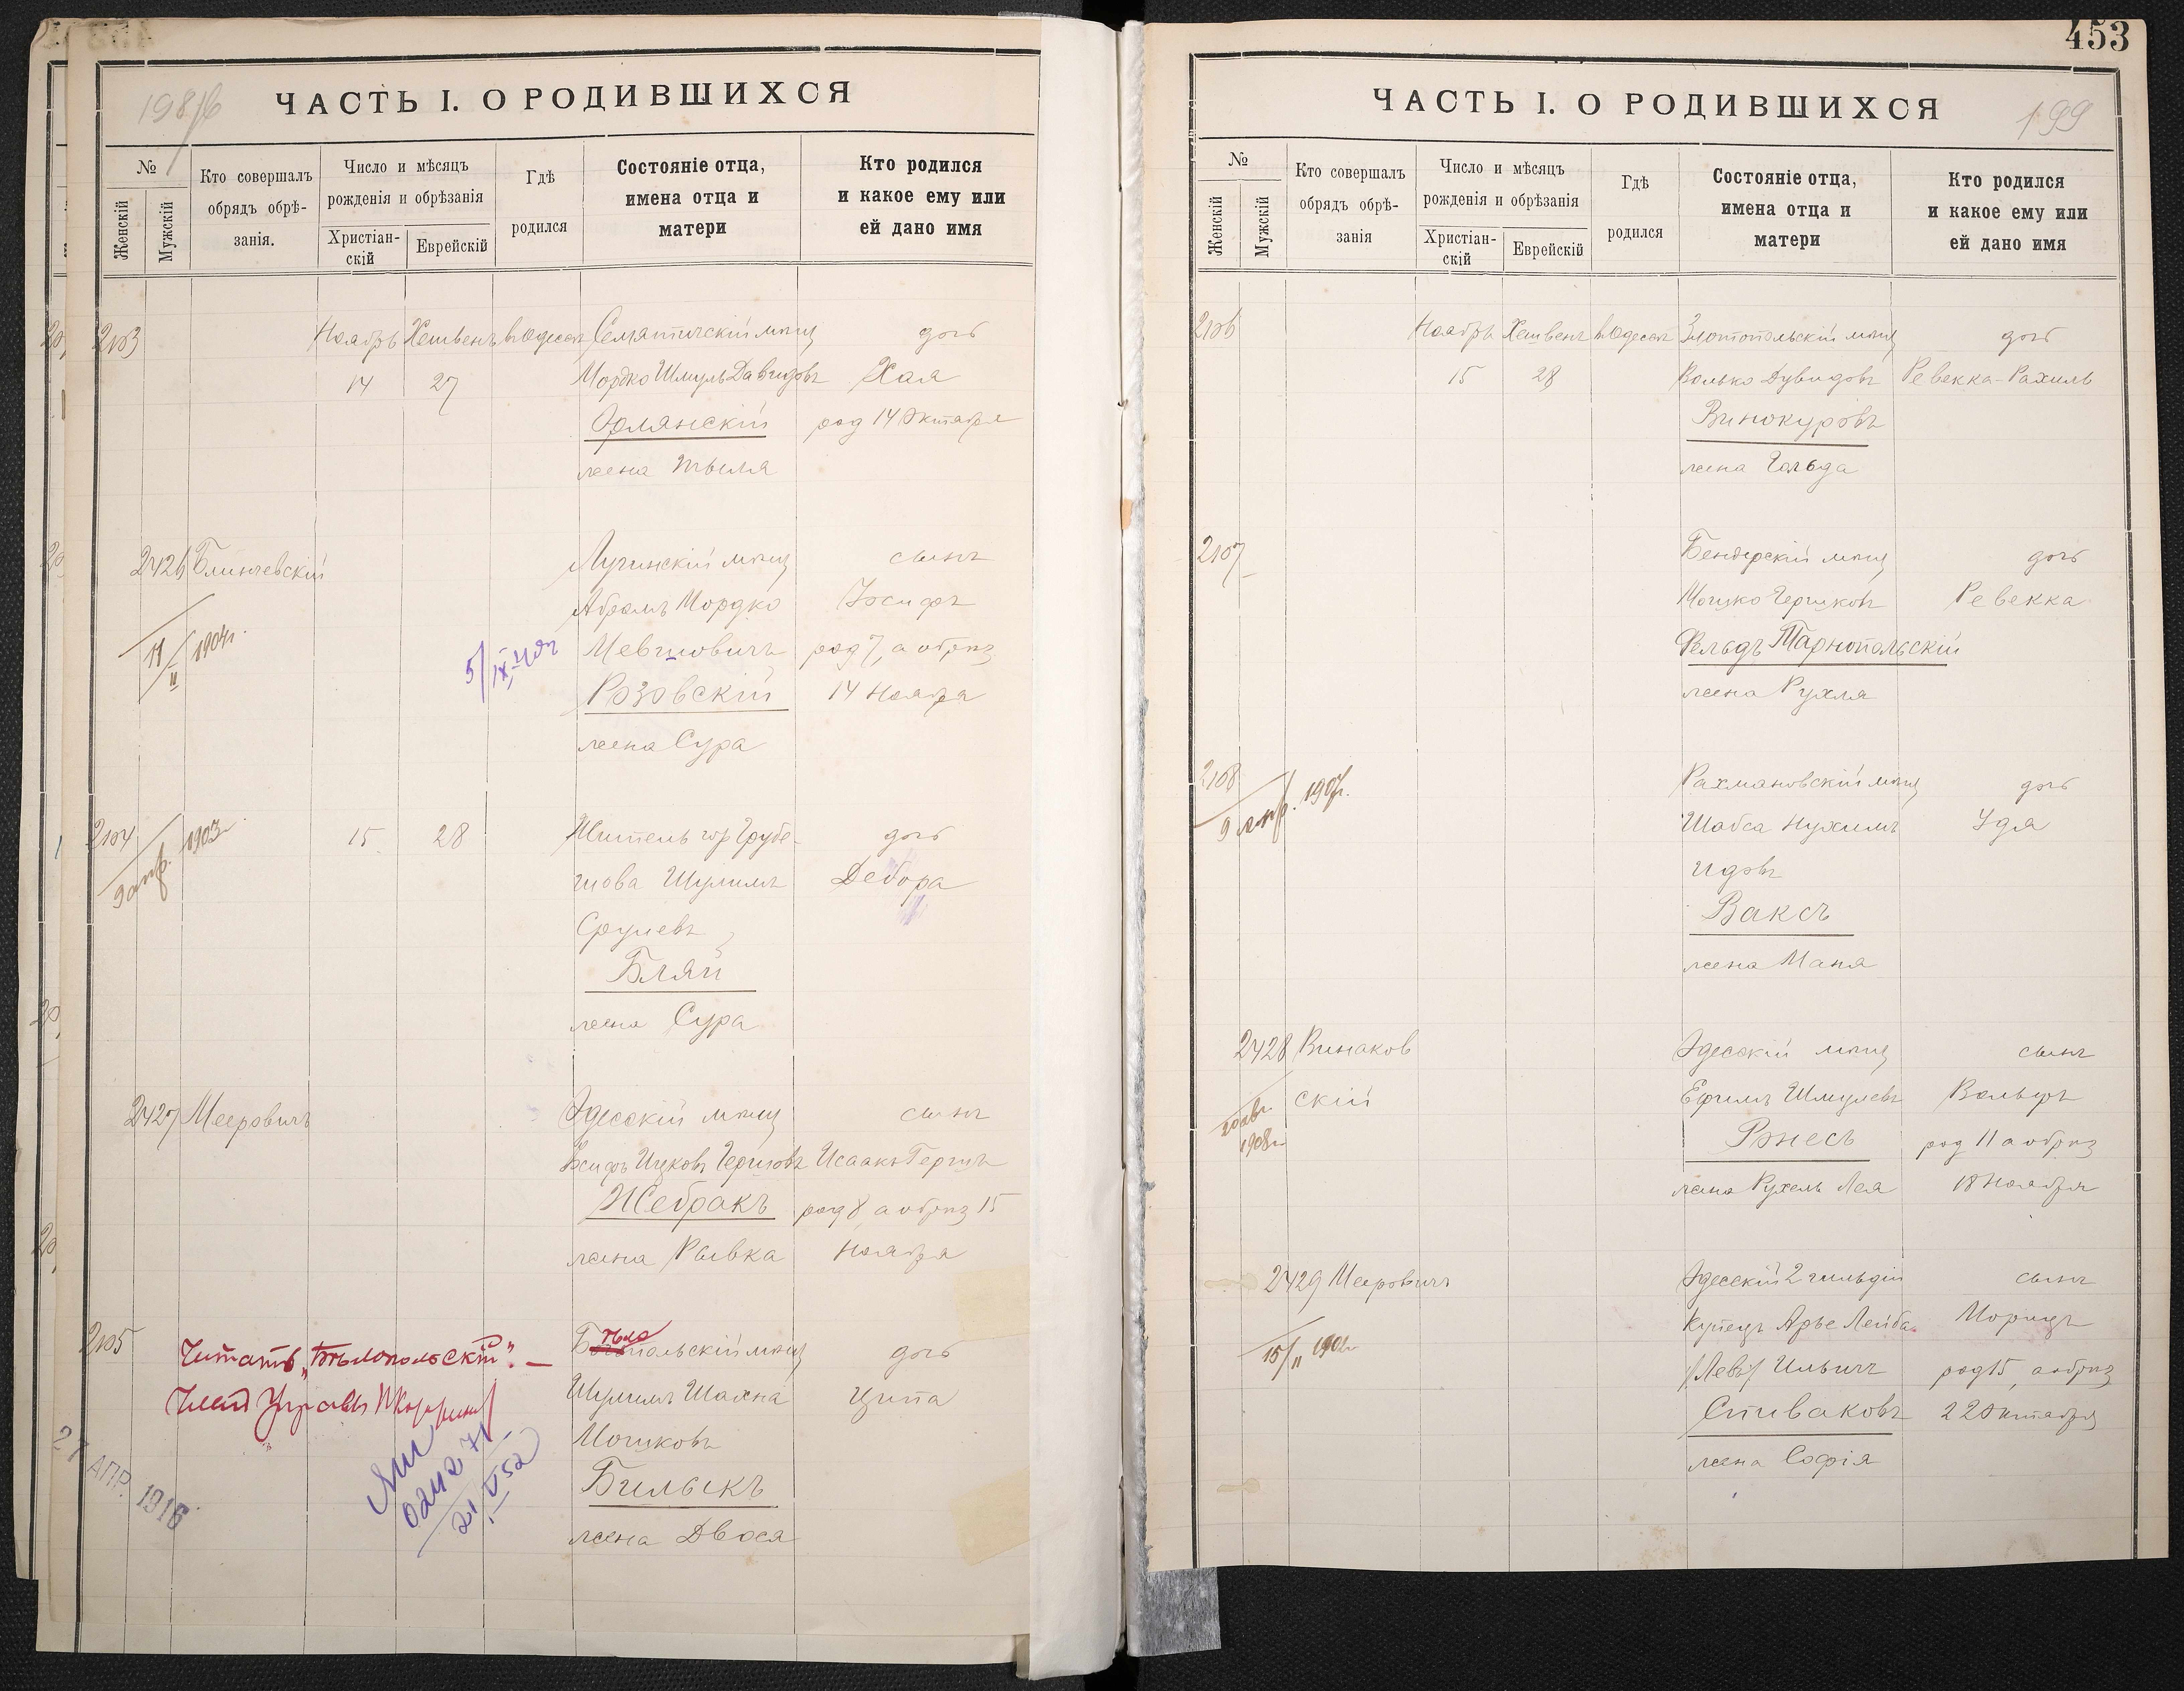 198/б
ЧАСТЬ I. О РОДИВШИХСЯ
№
Женскій
Мужскій
Кто совершалъ
обрядъ обрѣ-
занія.
Число и мѣсяцъ
рожденія и обрѣзанія
Христіан-
скій
Еврейскій
Гдѣ
родился
Состояніе отца,
имена отца и
матери
Кто родился
и какое ему или
ей дано имя
2103 Ноябрь Хешвенъ въ Одессѣ Семятичскій мѣщ дочь
14 27 Мордко Шмуль Давидовъ Хая
Орлянскій род 14 Октября
жена Тывля
2426 Блинчевскій Лугинскій мѣщ сынъ
Абрамъ Мордко Іосифъ
11/II 1904г. 5/IX
род 7, а обрѣз
Розовскій 14 Ноября
жена Сура
2104 15 28 Житель гор Грубе- дочь
9 апр. 1903г.
шова Шулимъ Дебора
Срулевъ
Бляй
жена Сура
2427 Мееровичъ Одесскій мѣщ сынъ
Іосифъ Ицковъ Гершовъ Исаакъ Гершъ
Жебракъ род 8, а обрѣз 15
жена Рывка Ноября
2105 Читать „Бѣлопольскій“. —
польскій мѣщ дочь
Членъ Управы
Шулимъ Шахна Ципа
Мошковъ
Билыкъ
жена Двося
27 АПР. 1916
21 V 52
453
199
ЧАСТЬ I. О РОДИВШИХСЯ
№
Женскій
Мужскій
Кто совершалъ
обрядъ обрѣ-
занія
Число и мѣсяцъ
рожденія и обрѣзанія
Христіан-
скій
Еврейскій
Гдѣ
родился
Состояніе отца,
имена отца и
матери
Кто родился
и какое ему или
ей дано имя
2106 Ноябрь Хешвенъ въ Одессѣ Златопольскій мѣщ дочь
15 28 Волько Дувидовъ Ревекка-Рахиль
Винокуровъ
жена Гольда
2107 Бендерскій мѣщ дочь
Мошко Гершковъ Ревекка
Фельдъ Тарнопольскій
жена Рухля
2108 Рахмановскій мѣщ дочь
9 апр. 1907г.
Шабса Нухимъ Удя
Идовъ
Ваксъ
жена Маня
2428 Винаков Одесскій мѣщ сынъ
скій Ефимъ Шмулевъ Вольфъ
20 авг.
1908г.
Рэнесъ род 11 а обрѣз
жена Рухель Лея 18 Ноября
2429 Мееровичъ Одесскій 2 гильдіи сынъ
Купецъ Арье Лейба Морицъ
15/II
/Левъ/ Ильичъ род 15, а обрѣз
Спиваковъ 22 Октября
жена Софія